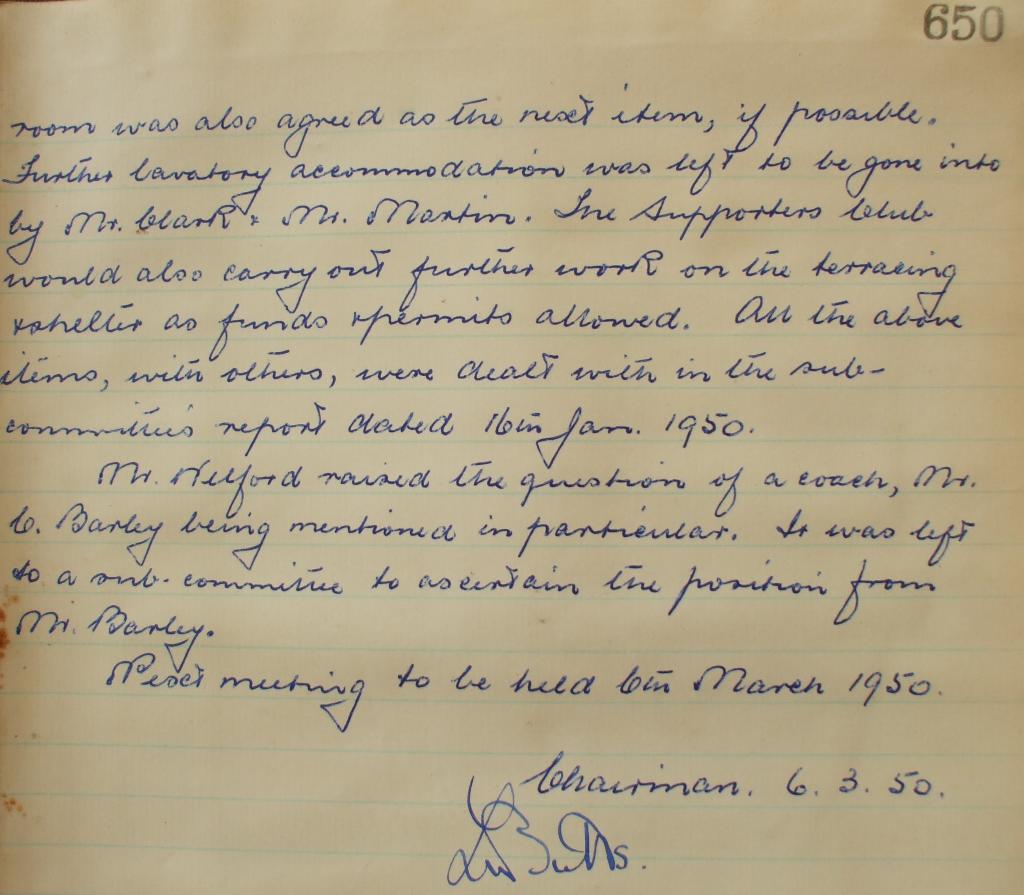 650
room was also agreed as the next item, if possible.
Further lavatory accommodation was left to be gone into
by Mr. Clark & Mr. Martin. The Supporters Club
would also carry out further work on the terracing
& shelter as funds & permits allowed. All the above
items, with others, were dealt with in the sub-
committee's report dated 16th Jan. 1950.
Mr. Welford raised the question of a coach, Mr.
C. Barley being mentioned in particular. It was left
to a sub-committee to ascertain the position from
Mr. Barley.
Next meeting to be held 6th March 1950.
Chairman. 6. 3. 50.
Butts.